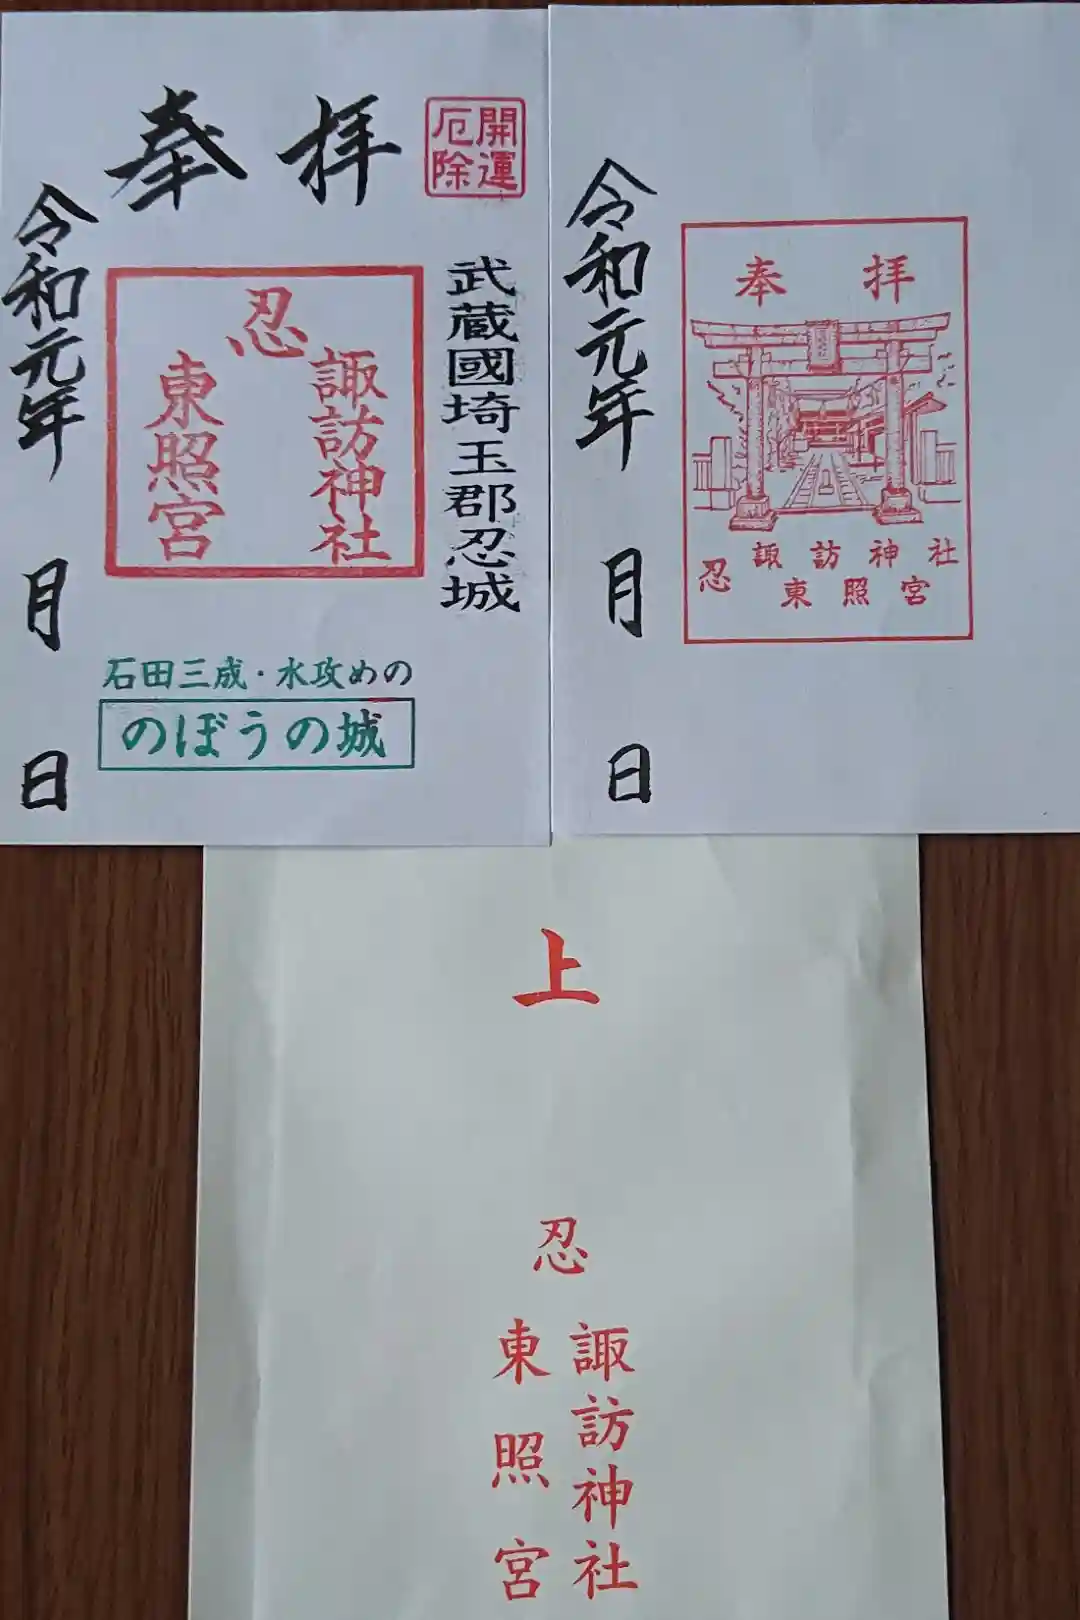 奉拝
開運
厄除
武蔵國埼玉郡忍城
忍
諏訪神社
東照宮
令和元年 月 日
石田三成・水攻めの
のぼうの城
奉拝
忍
諏訪神社
東照宮
令和元年 月 日
上
忍
諏訪神社
東照宮